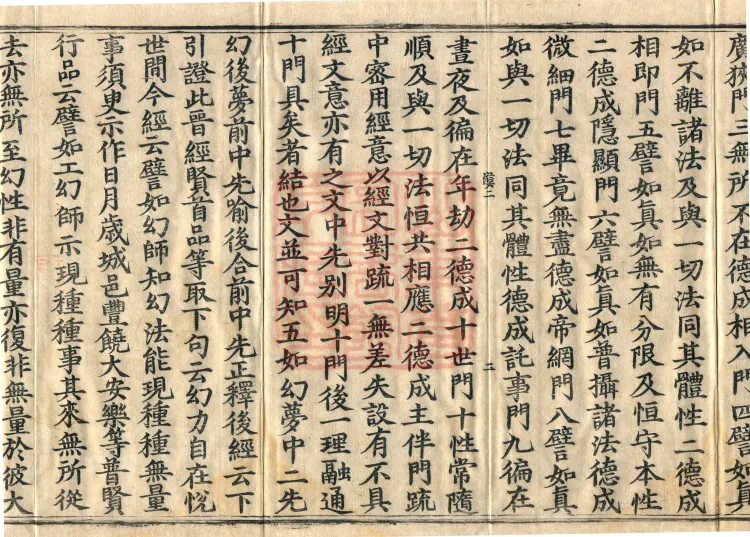 廣狹門三無所不在德成相入門四譬如真
如不離諸法及與一切法同其體性二德成
相即門五譬如真如無有分限及恒守本性
二德成隱顯門六譬如真如普攝諸法德成
微細門七畢竟無盡德成帝網門八譬如真
如與一切法同其體性德成託事門九徧在
晝夜及徧在年劫二德成十世門十性常隨
順及與一切法恒共相應二德成主伴門䟽
中宻用經意以經文對䟽一無差失設有不具
經文意亦有之文中先别明十門後一理融通
十門具矣者結也文並可知五如幻夢中二先
幻後夢前中先喻後合前中先正釋後經云下
引證此晉經賢首品等取下句云幻力自在悅
世間今經云譬如幻師知幻法能現種種無量
事須臾示作日月歲城邑豐饒大安樂等普賢
行品云譬如工幻師示現種種事其來無所從
去亦無所至幻性非有量亦復非無量於彼大
二